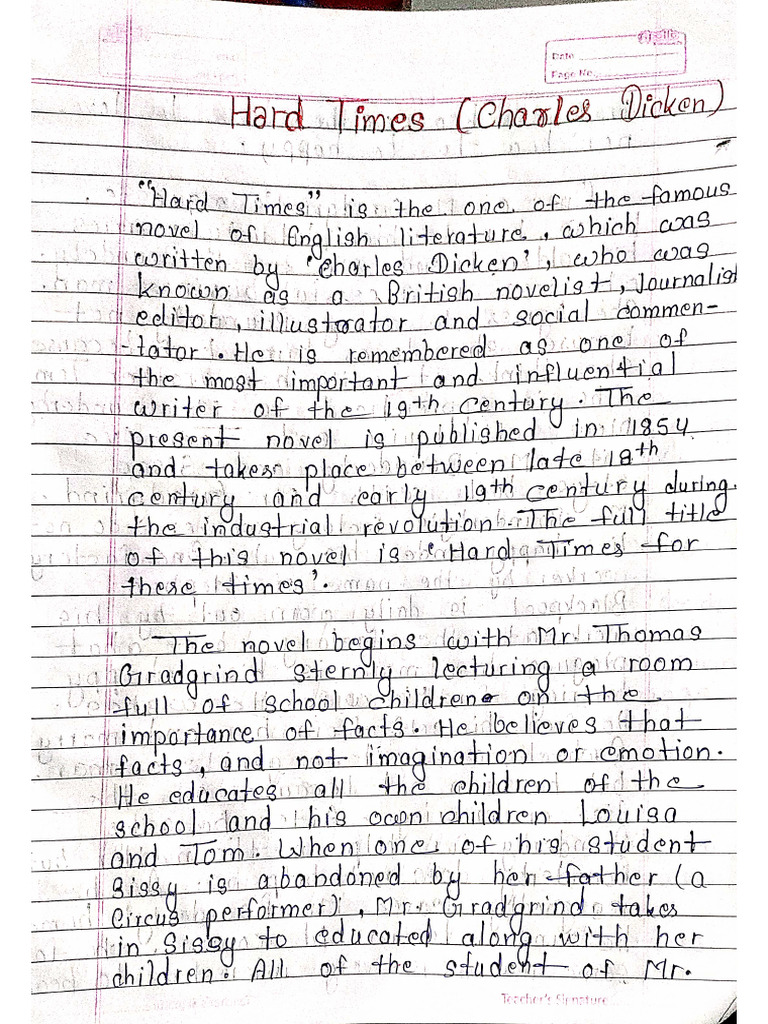 Date
Page No.
Hard Times (Charles Dicken)
"Hard Times" is the one of the famous
novel of English literature, which was
written by 'Charles Dicken', who was
known as a British novelist, Journalist
editor, illustrator and social commen-
-tator. He is remembered as one of
the most important and influential
writer of the 19th century. The
present novel is published in 1854
and takes place between late 18th
century and early 19th century during
the industrial revolution The full title
of this novel is 'Hard Times for
these times'.
The novel begins with Mr. Thomas
Gradgrind sternly lecturing a room
full of school children on the
importance of facts. He believes that
facts, and not imagination or emotion.
He educates all the children of the
school and his own children Louisa
and Tom. When one of his student
Sissy is abandoned by her father (a
Circus performer), Mr. Gradgrind takes
in Sissy to educated along with her
children. All of the student of Mr.
Teacher's Signature